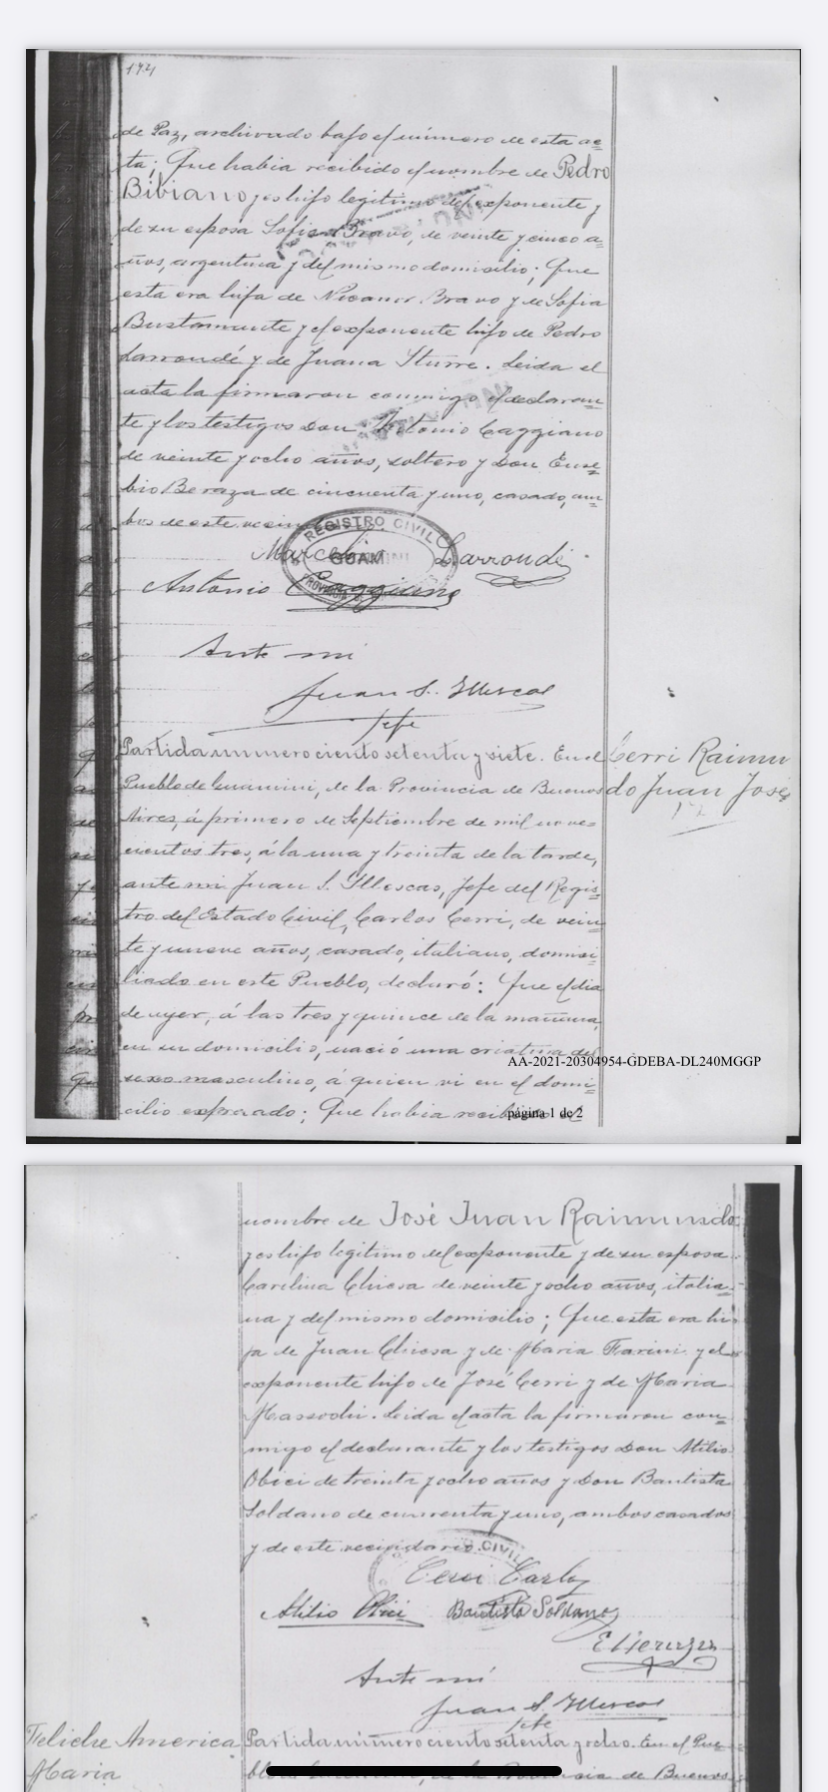 174
de Paz, archivado bajo el número de esta ac=
ta; Que habia recibido el nombre de Pedro
Bibiano y es hijo legitimo del exponente y
de su esposa Sofia Bravo, de veinte y cinco a=
ños, argentina y del mismo domicilio; Que
esta era hija de Nicanor Bravo y de Sofia
Bustamante y el exponente hijo de Pedro
Larrondé y de Juana Iturre. Leida el
acta la firmaron conmigo el declaran=
te y los testigos Don Antonio Caggiano
de veinte y ocho años, soltero y Don Euse=
bio Beraza de cincuenta y uno, casado, am=
bos de este
REGISTRO CIVIL
GUAMINI
Marcelino Larrondé
Antonio Caggiano
Ante mi
Juan S. Illescas
Jefe
Partida número ciento setenta y siete. En el
Cerri Raimun
do Juan José
Pueblo de Guamini, de la Provincia de Buenos
Aires, á primero de Septiembre de mil nove=
cientos tres, á la una y treinta de la tarde,
ante mi Juan S. Illescas, Jefe del Regis=
tro del Estado Civil, Carlos Cerri, de vein=
te y nueve años, casado, italiano, domici=
liado en este Pueblo, declaró: Que el dia
de ayer, á las tres y quince de la mañana,
en su domicilio, nació una criatura del
AA-2021-20304954-GDEBA-DL240MGGP
sexo masculino, á quien vi en el domi=
cilio expresado; Que habia recibido el
página 1 de 2
nombre de José Juan Raimundo
y es hijo legitimo del exponente y de su esposa
Carolina Chiesa de veinte y ocho años, italia=
na y del mismo domicilio; Que esta era hi=
ja de Juan Chiesa y de Maria Farini y el
exponente hijo de José Cerri y de Maria
Massochi. Leida el acta la firmaron con=
migo el declarante y los testigos Don Atilio
Obici de treinta y ocho años y Don Bautista
Soldano de cuarenta y uno, ambos casados
y de este vecindario.
CIVIL
Cerri Carlo
Atilio Obici Bautista Soldano
Ante mi
Juan S. Illescas
Jefe
Feliche America
Maria
Partida número ciento setenta y ocho. En el Pue=
de la Provincia de Buenos